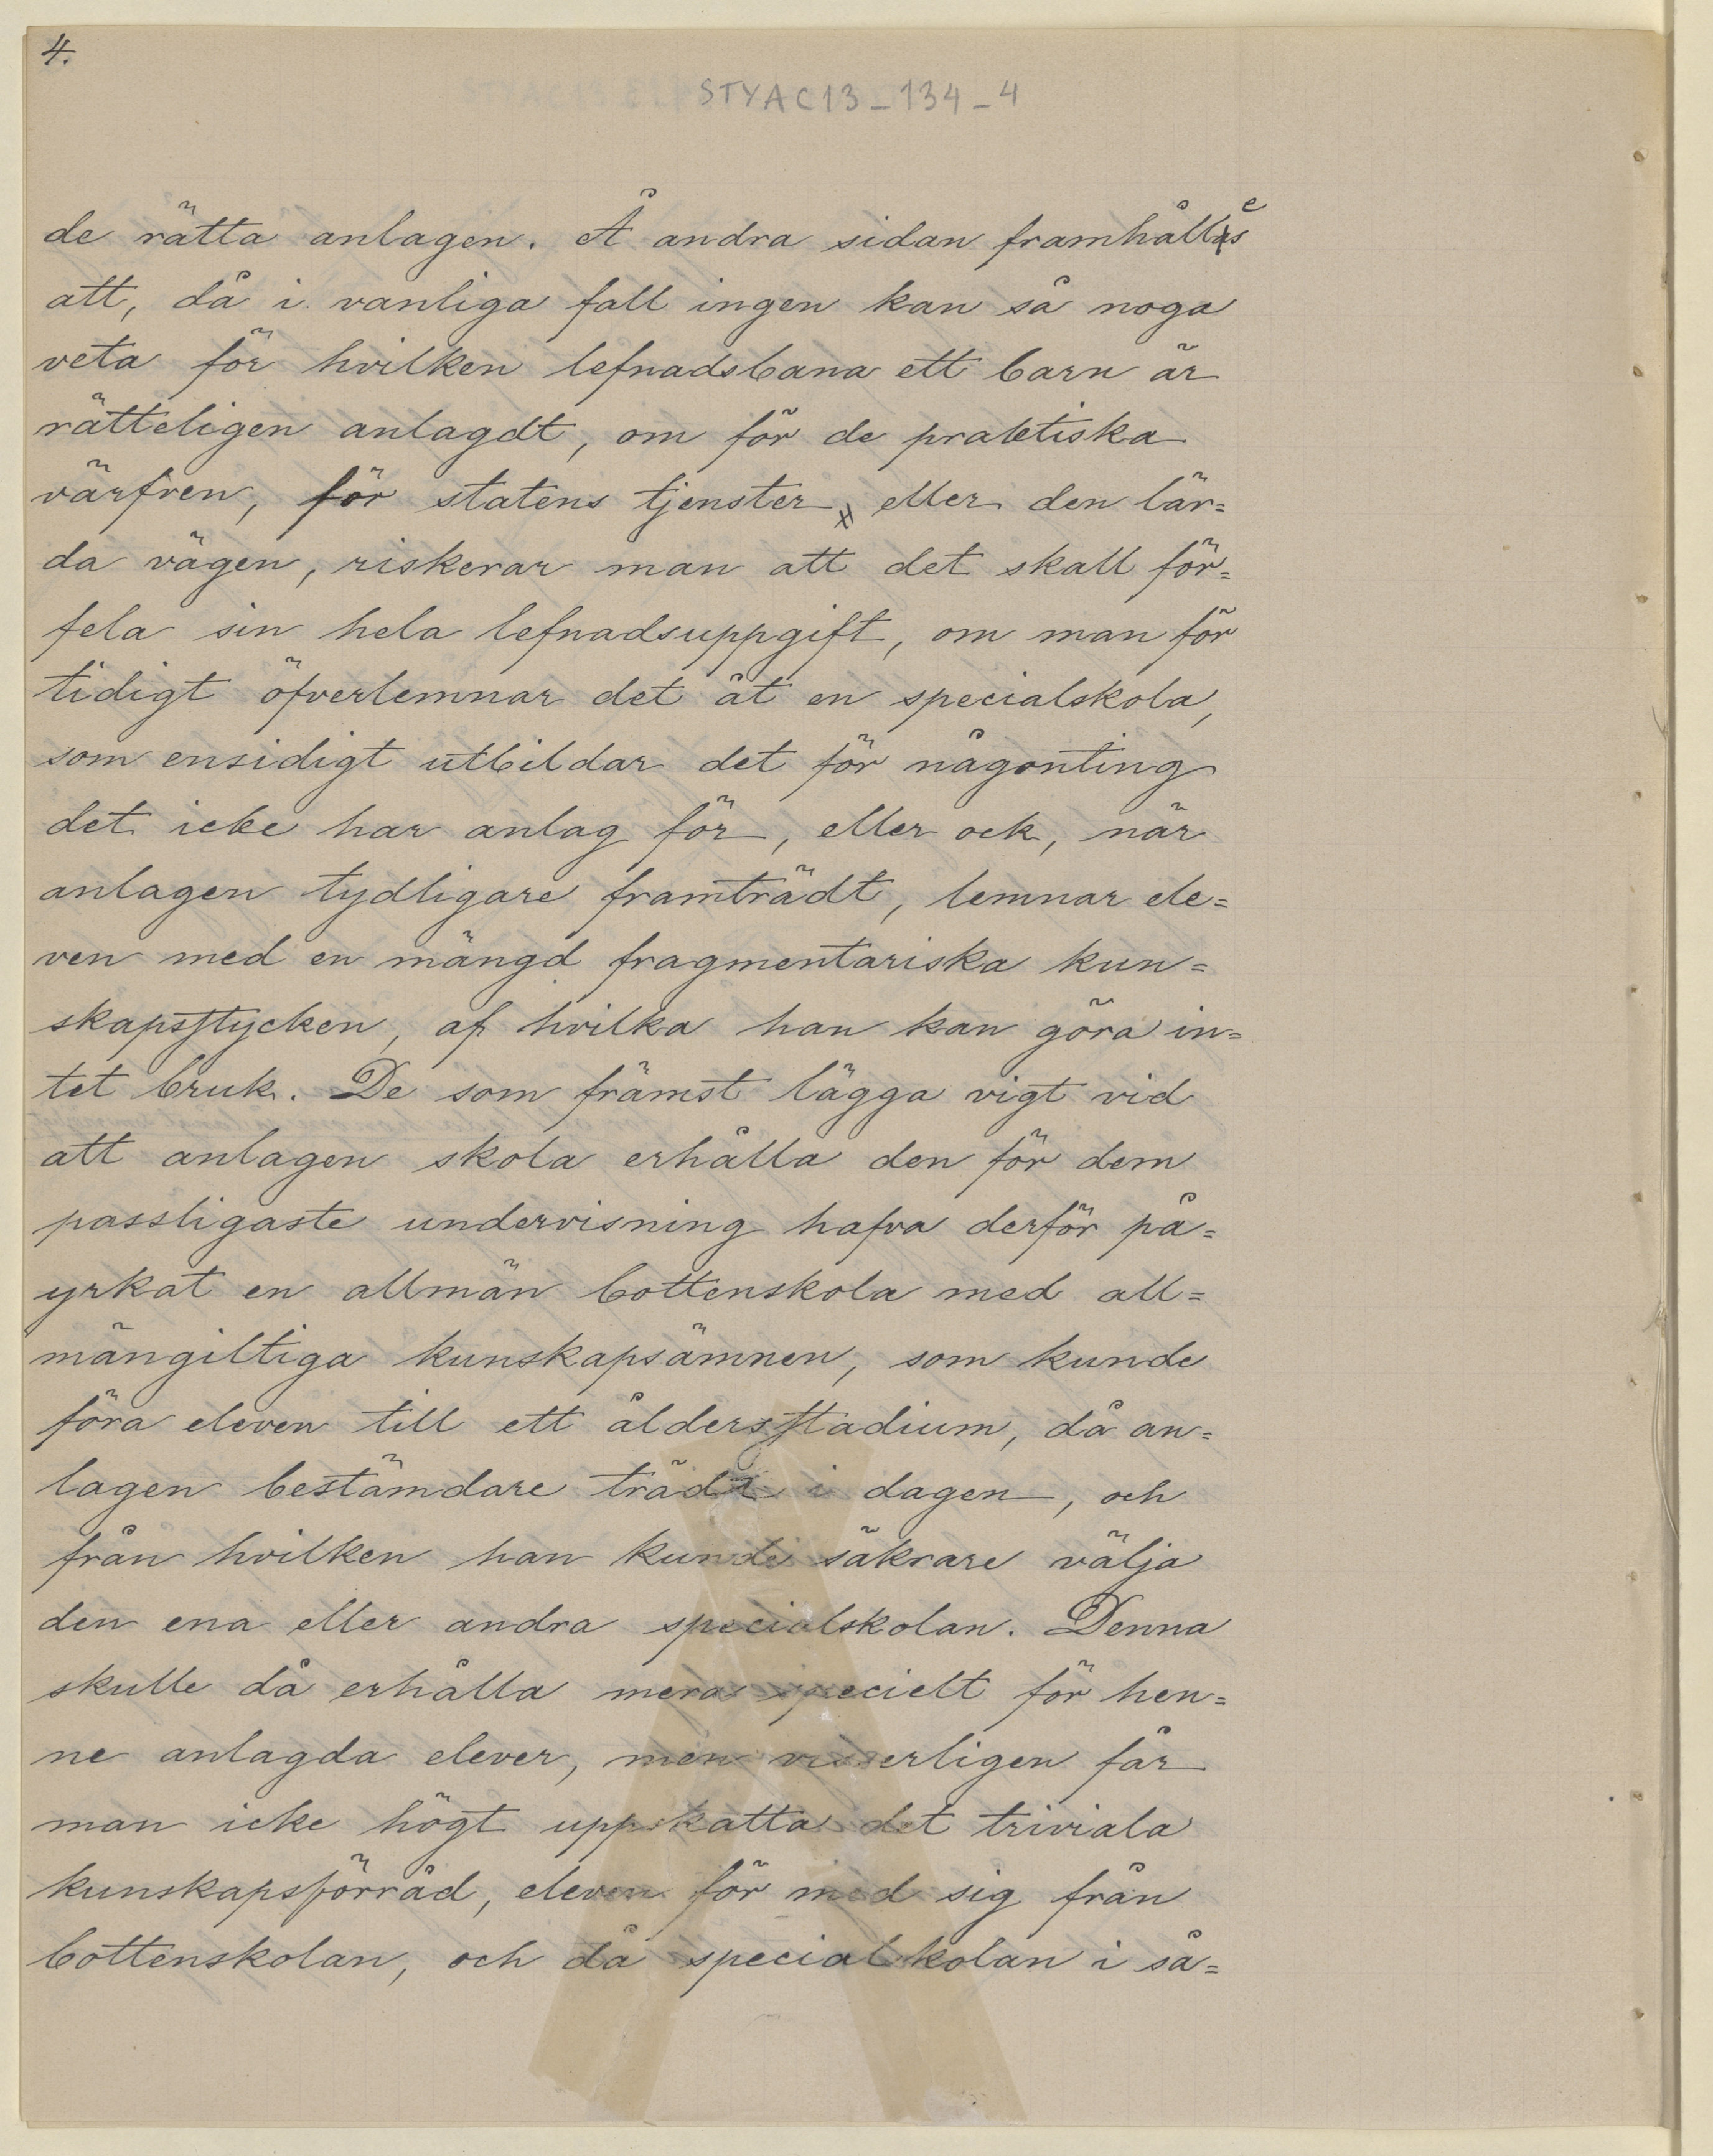 4.
STYAC13_134_4
de rätta anlagen. Å andra sidan framhålles
att, då i vanliga fall ingen kan så noga
veta för hvilken lefnadsbana ett barn är
rätteligen anlagdt, om för de praktiska
värfven, för statens tjenster, eller den lär=
da vägen, riskerar man att det skall för=
fela sin hela lefnadsuppgift, om man för
tidigt öfverlemnar det åt en specialskola,
som ensidigt utbildar det för någonting
det icke har anlag för, eller ock, när
anlagen tydligare framträdt, lemnar ele=
ven med en mängd fragmentariska kun=
skapsstycken, af hvilka han kan göra in=
tet bruk. De som främst lägga vigt vid
att anlagen skola erhålla den för dem
passligaste undervisning hafva derför på=
yrkat en allmän bottenskola med all=
mängiltiga kunskapsämnen, som kunde
föra eleven till ett åldersstadium, då an=
lagen bestämdare trädt i dagen, och
från hvilken han kunde säkrare välja
den ena eller andra specialskolan. Denna
skulle då erhålla mera specielt för hen=
ne anlagda elever, men visserligen får
man icke högt uppskatta det triviala
kunskapsförråd, eleven för med sig från
bottenskolan, och då specialskolan i så=